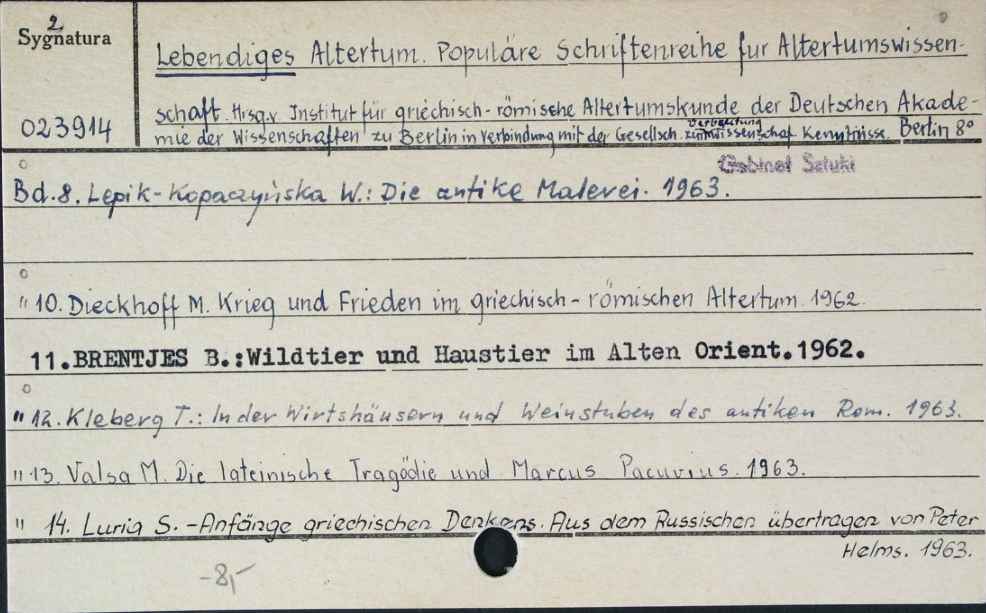 2
Sygnatura
Lebendiges Altertum. Populäre Schriftenreihe fur Altertumswissen-
schaft. Hrsg.v. Institut für griechisch-römische Altertumskunde der Deutschen Akade-
023914
mie der Wissenschaften zu Berlin in Verbindung mit der Gesellsch. zur Verbreitung wissenschaf. Kenntnisse. Berlin 8°
Gabinet Sztuki
Bd.8. Lepik-Kopaczyńska W.: Die antike Malerei. 1963.
" 10. Dieckhoff M. Krieg und Frieden im griechisch-römischen Altertum. 1962.
11.BRENTJES B.:Wildtier und Haustier im Alten Orient.1962.
" 12. Kleberg T.: In der Wirtshäusern und Weinstuben des antiken Rom. 1963.
" 13. Valsa M. Die lateinische Tragödie und Marcus Pacuvius. 1963.
" 14. Luria S. -Anfänge griechischen Denkens. Aus dem Russischen übertragen von Peter
Helms. 1963.
-8,-